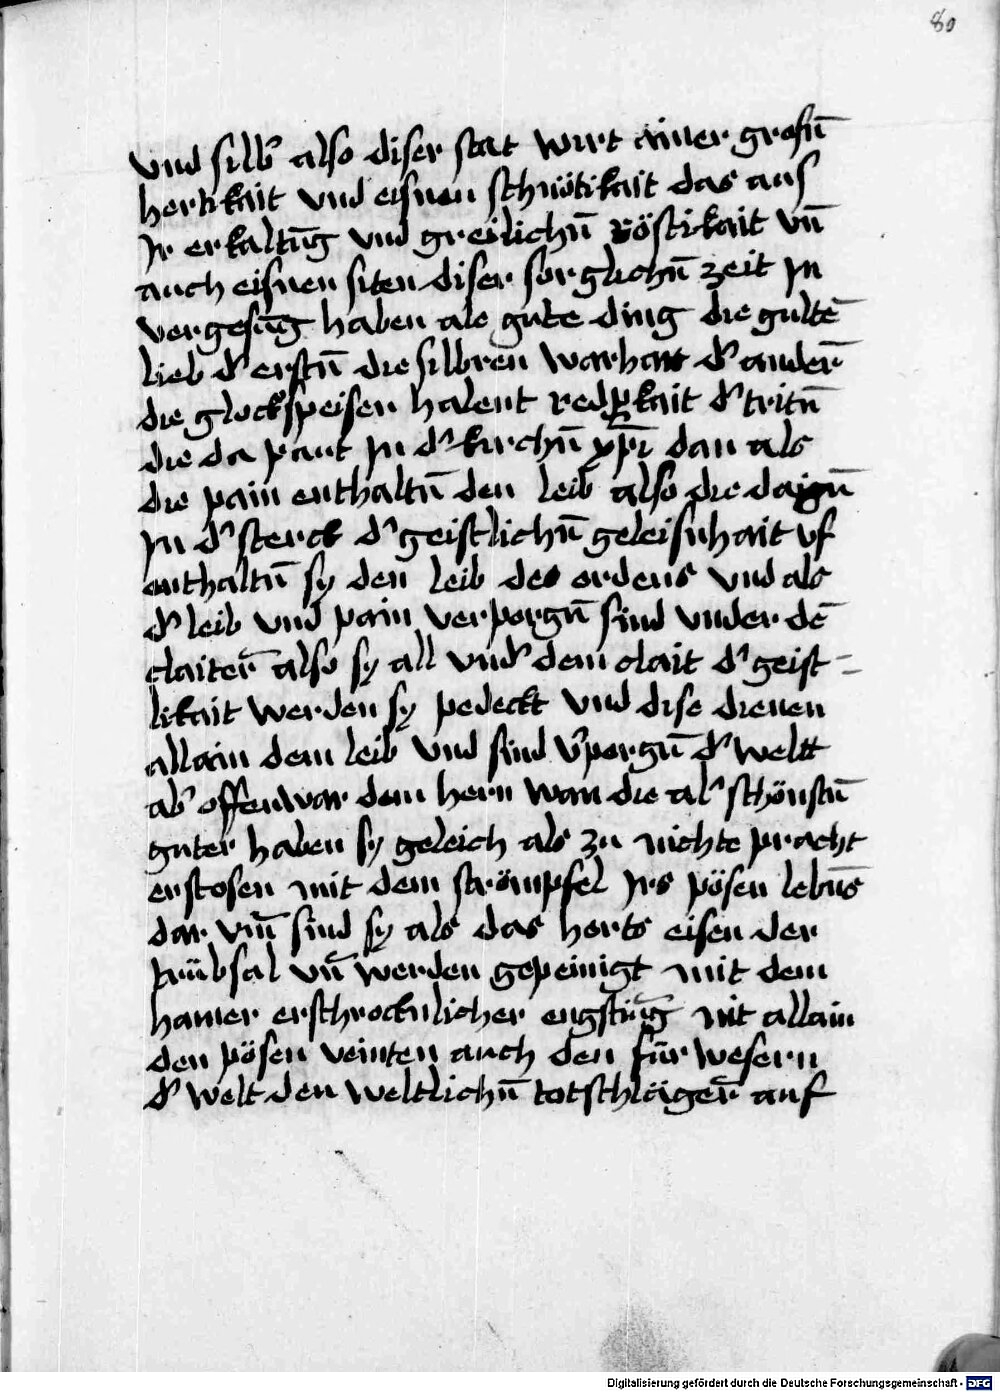 80
vnd silb᷑ also diser stat wirt ainer grosn̄
hertikait vnd eisnen schnötikait das aus
Jr erkaltūg vnd greilichn̄ röstikait vn̄
auch eisnen siten diser sorglichn̄ zeit Jn
vergesūg haben als gute ding die gultē
lieb d᷑ erstn̄ die silbren warhait d᷑ andern̄
die glockspeisen halent redpkait d᷑ tritn̄
die da paut Jn d᷑ kirchn̄ xp̄i dan als
die pain enthaltn̄ den leib also die daign̄
Jn d᷑ sterck d᷑ geistlichn̄ geleisnhait vf
enthaltn̄ sy den leib des ordens vnd als
d᷑ leib vnd pain verporgn̄ sind vnder dē
claiter̄ also sy all vnd᷑ dem clait d᷑ geist=
likait werden sy pedeckt vnd dise dienen
allain dem leib vnd sind v᷑porgn̄ d᷑ weltt
ab᷑ offenwar dem hern wan die al᷑ schönstn̄
guter haben sy geleich als zu nichte pracht
erstosen mit dem strömpfel Jrs pösen lebn̄s
dar vm̄ sind sy als das herts eisen der
trübsal vn̄ werden gepeinigt mit dem
hamer erschrocknlicher engstūg nit allain
den pösen veinten auch den fürwesern
d᷑ welt den weltlichn̄ totschläger̄ auf
Digitalisierung gefördert durch die Deutsche Forschungsgemeinschaft - DFG